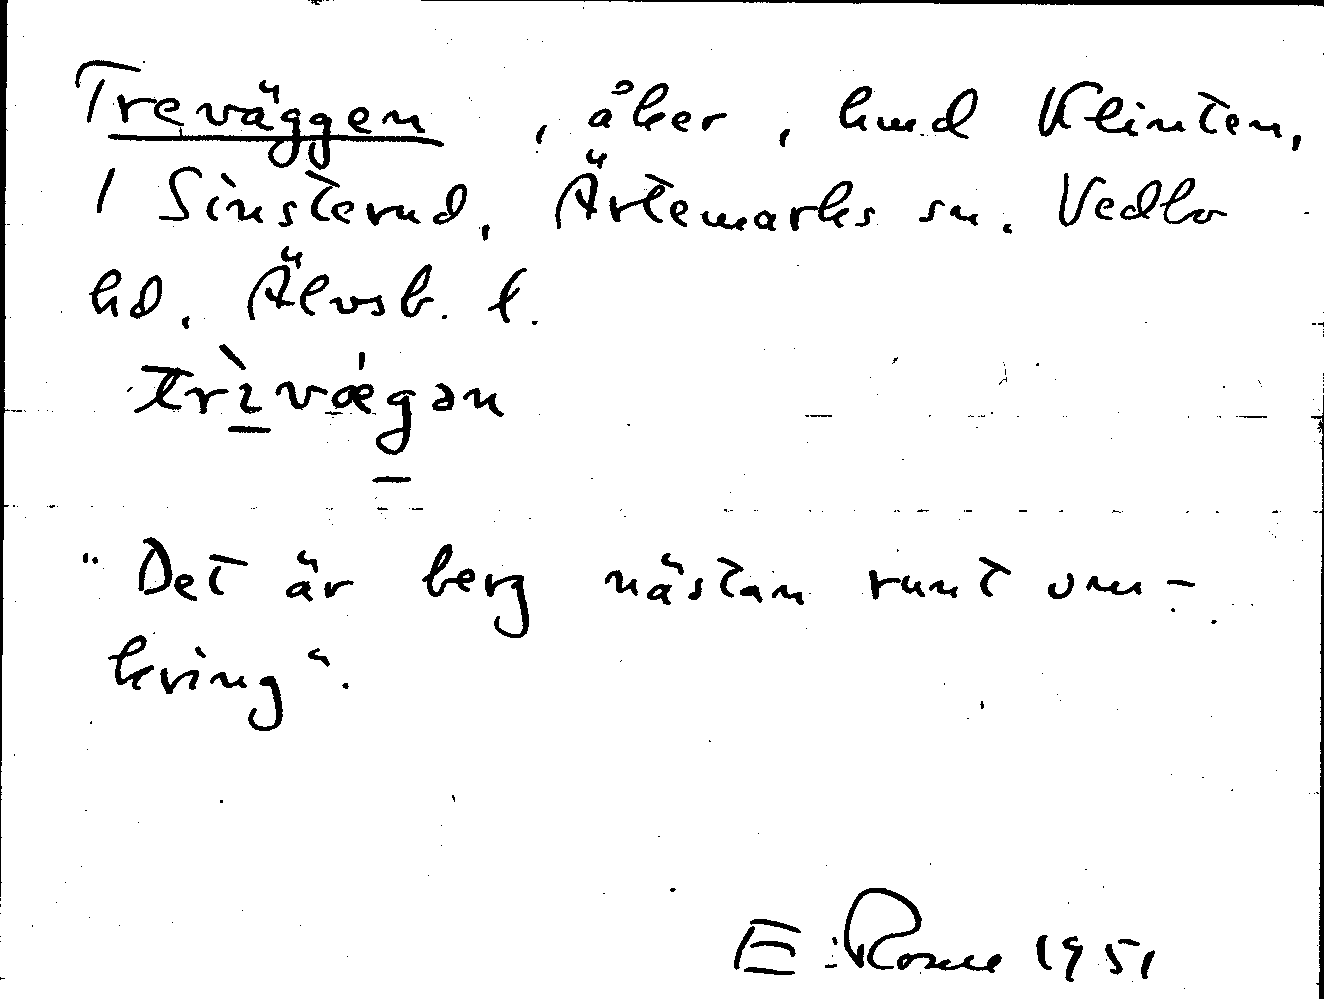 Treväggen, åker, hmd Klinten,
1 Sinsterud, Ärtemarks sn. Vedbo
hd. Älvsb. l.
trìvǽgən
"Det är berg nästan runt om-
kring".
E. 1951